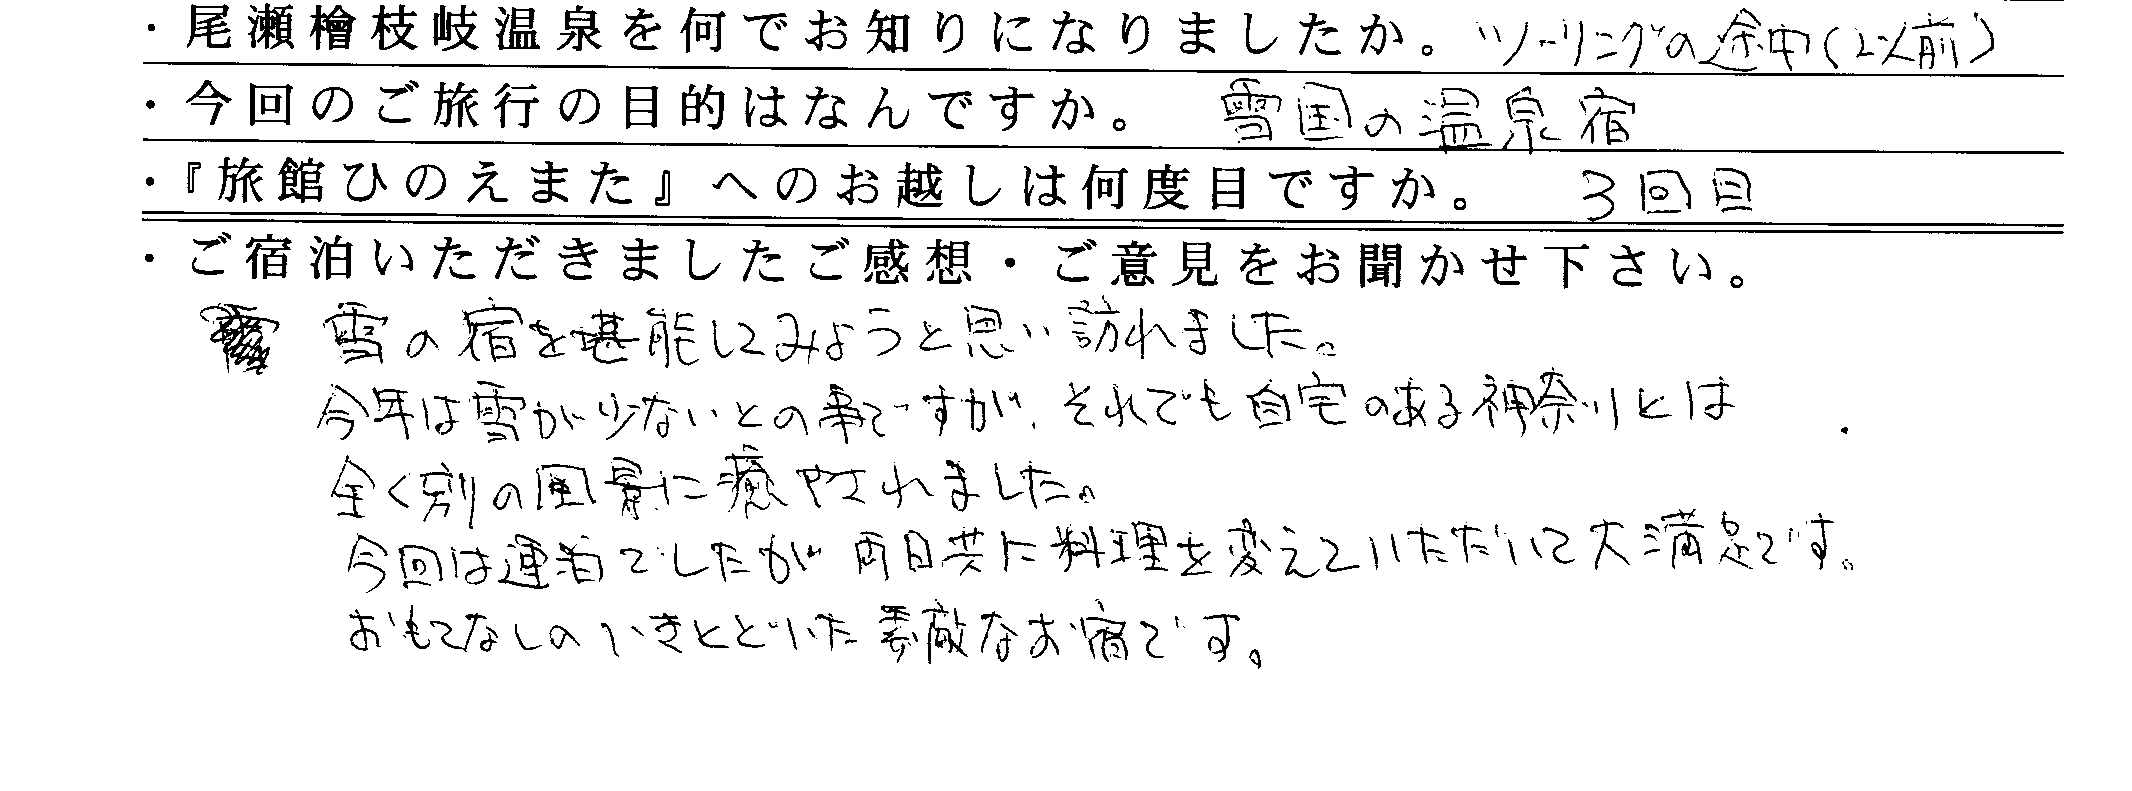 ・尾瀬檜枝岐温泉を何でお知りになりましたか。ツーリングの途中(以前)
・今回のご旅行の目的はなんですか。 雪国の温泉宿
・『旅館ひのえまた』へのお越しは何度目ですか。 3回目
・ご宿泊いただきましたご感想・ご意見をお聞かせ下さい。
雪の宿を堪能してみようと思い訪れました。
今年は雪が少ないとの事ですが、それでも自宅のある神奈川とは
全く別の風景に癒やされました。
今回は連泊でしたが両日共に料理を変えていただいて大満足です。
おもてなしのいきとどいた素敵なお宿です。